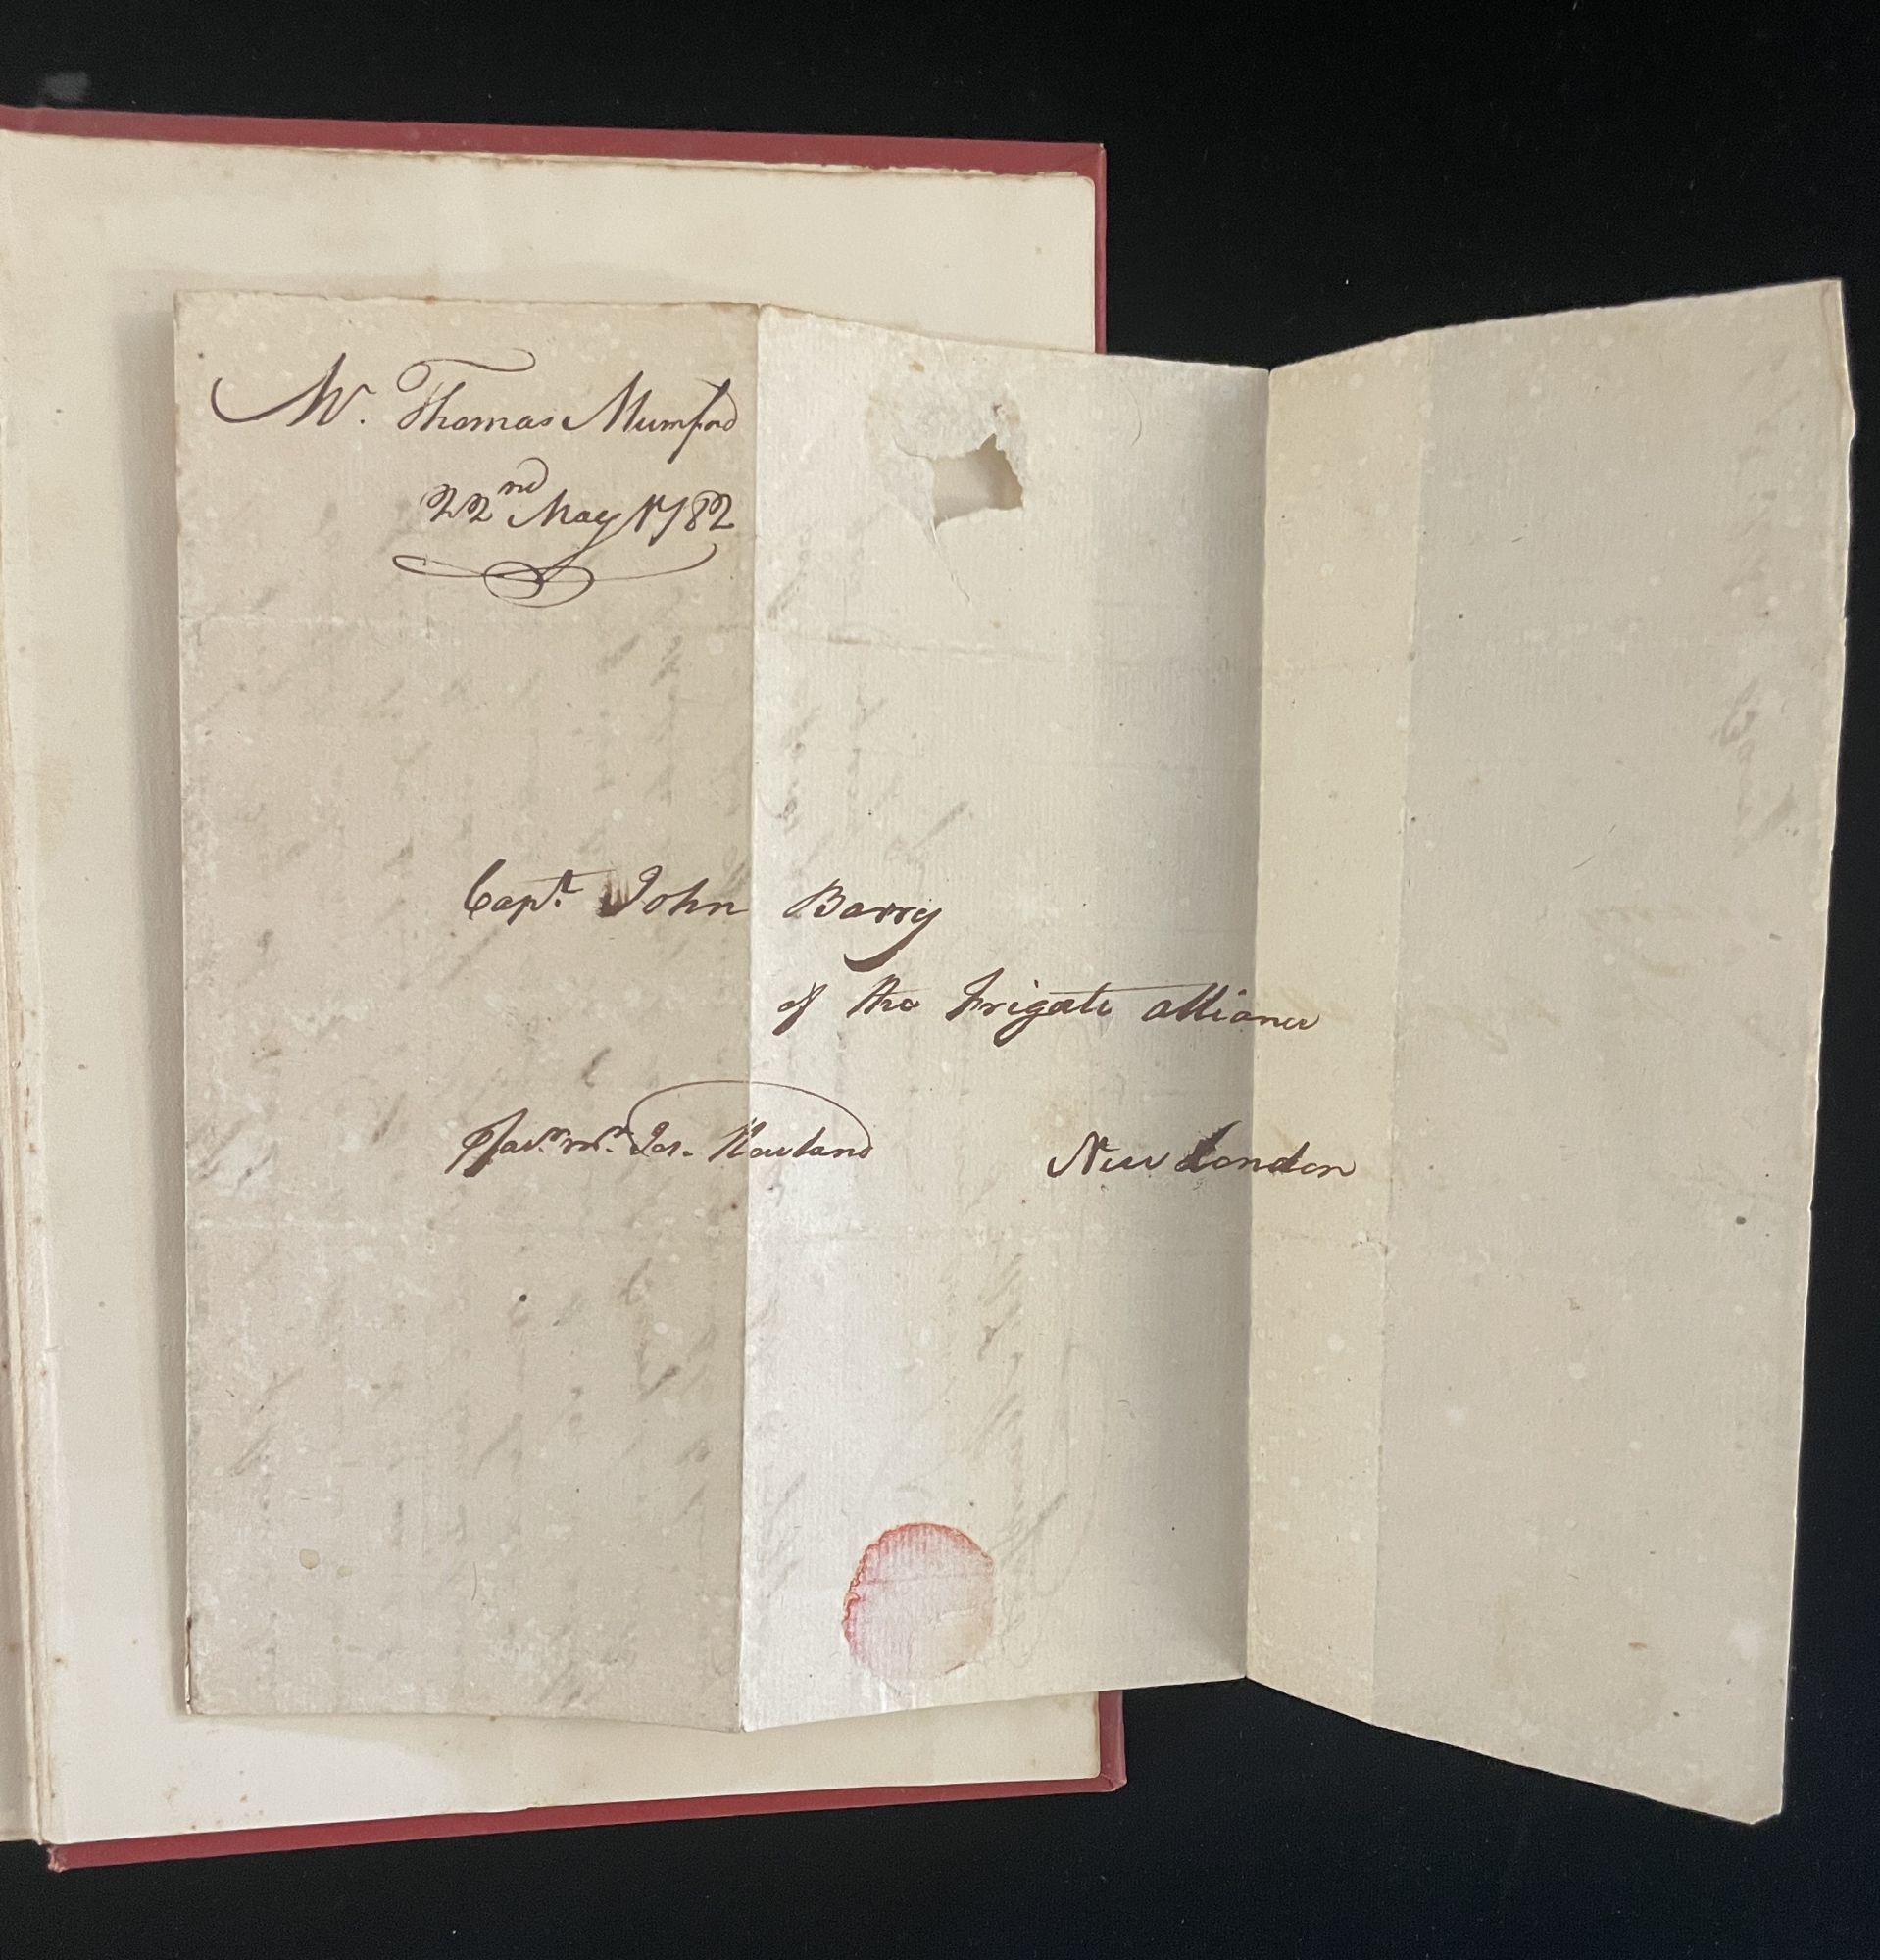 Mr. Thomas Mumford
22nd May 1782
Capt. John Barry
of the Frigate alliance
favr. mr. Jos. Howland
New London